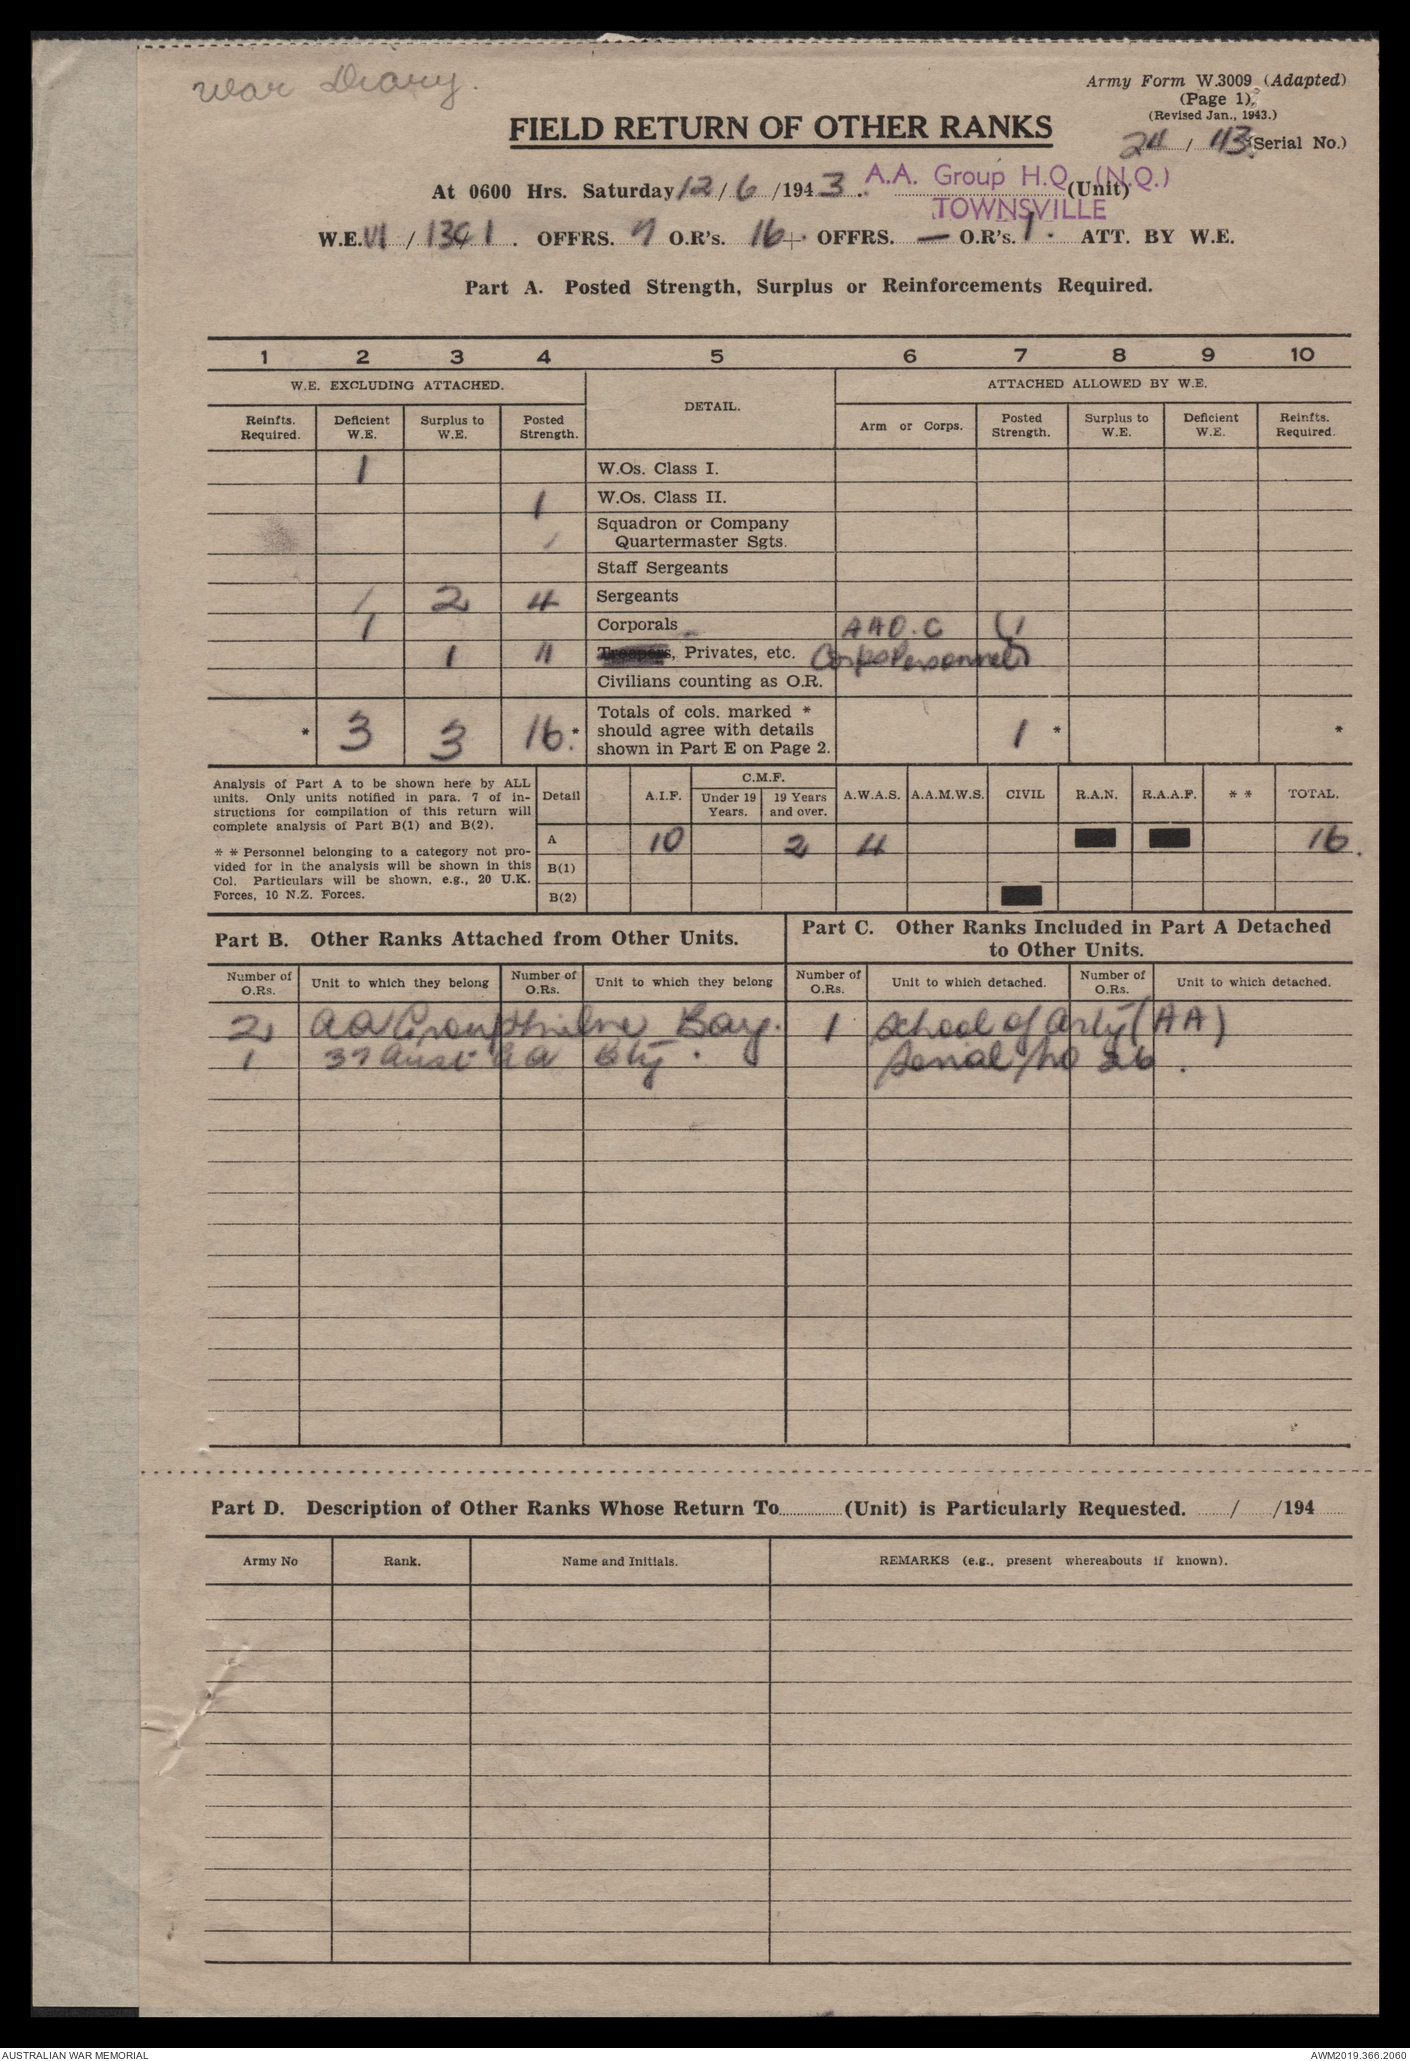 War Diary.
Army Form W.3009 (Adapted)
(Page 1).
(Revised Jan., 1943.)
FIELD RETURN OF OTHER RANKS
24 / 43. (Serial No.)
At 0600 Hrs. Saturday 12/6/1943. A.A. Group H.Q. (N.Q.) (Unit)
TOWNSVILLE
W.E. VI / 1341. OFFRS. 7 O.R's. 16 + OFFRS. — O.R's. 1. ATT. BY W.E.
Part A. Posted Strength, Surplus or Reinforcements Required.
1 2 3 4 5 6 7 8 9 10
W.E. EXCLUDING ATTACHED. DETAIL. ATTACHED ALLOWED BY W.E.
Reinfts. Required. Deficient W.E. Surplus to W.E. Posted Strength. Arm or Corps. Posted Strength. Surplus to W.E. Deficient W.E. Reinfts. Required.
1 W.Os. Class I.
1 W.Os. Class II.
Squadron or Company
/ Quartermaster Sgts.
Staff Sergeants
1 2 4 Sergeants
1 Corporals AAO.C (1
1 11 Troopers, Privates, etc. Corps Personnel)
Civilians counting as O.R.
* 3 3 16.* Totals of cols. marked * should agree with details shown in Part E on Page 2. 1 * *
Analysis of Part A to be shown here by ALL
units. Only units notified in para. 7 of in-
structions for compilation of this return will
complete analysis of Part B(1) and B(2).
* * Personnel belonging to a category not pro-
vided for in the analysis will be shown in this
Col. Particulars will be shown, e.g., 20 U.K.
Forces, 10 N.Z. Forces.
Detail A.I.F. C.M.F. Under 19 Years. 19 Years and over. A.W.A.S. A.A.M.W.S. CIVIL R.A.N. R.A.A.F. * * TOTAL.
A 10 2 4 16.
B(1)
B(2)
Part B. Other Ranks Attached from Other Units.
Part C. Other Ranks Included in Part A Detached
to Other Units.
Number of O.Rs. Unit to which they belong Number of O.Rs. Unit to which they belong Number of O.Rs. Unit to which detached. Number of O.Rs. Unit to which detached.
2 AA Group Milne Bay. 1 School of Arty (AA)
1 37 Aust AA Bty. Serial No 26.
Part D. Description of Other Ranks Whose Return To (Unit) is Particularly Requested. / /194
Army No Rank. Name and Initials. REMARKS (e.g., present whereabouts if known).
AUSTRALIAN WAR MEMORIAL AWM2019.366.2060